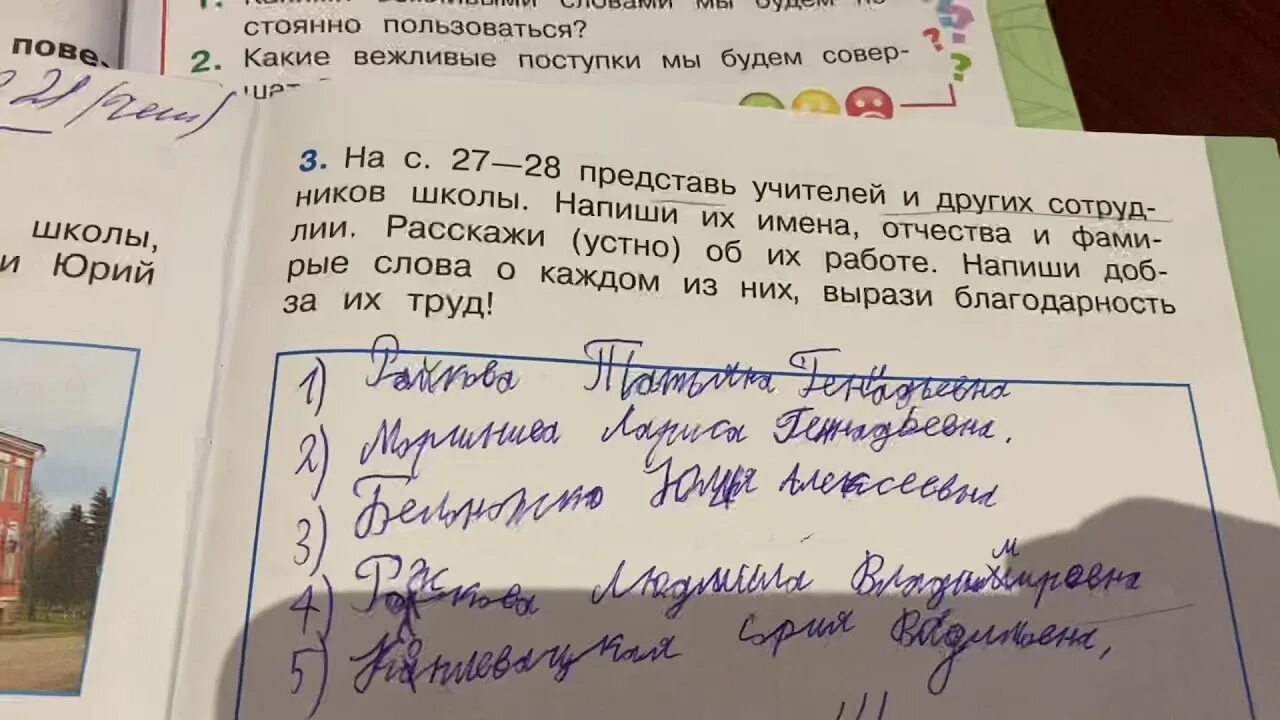 стоянно пользоваться?
2. Какие вежливые поступки мы будем совер-
пове.
21 (чет)
школы,
и Юрий
3. На с. 27—28 представь учителей и других сотруд-
ников школы. Напиши их имена, отчества и фами-
лии. Расскажи (устно) об их работе. Напиши доб-
рые слова о каждом из них, вырази благодарность
за их труд!
1) Райкова Татьяна Генадьевна
2) Лариса Геннадьевна.
3) Юлия Алексеевна
4) Людмила Владимировна
5)